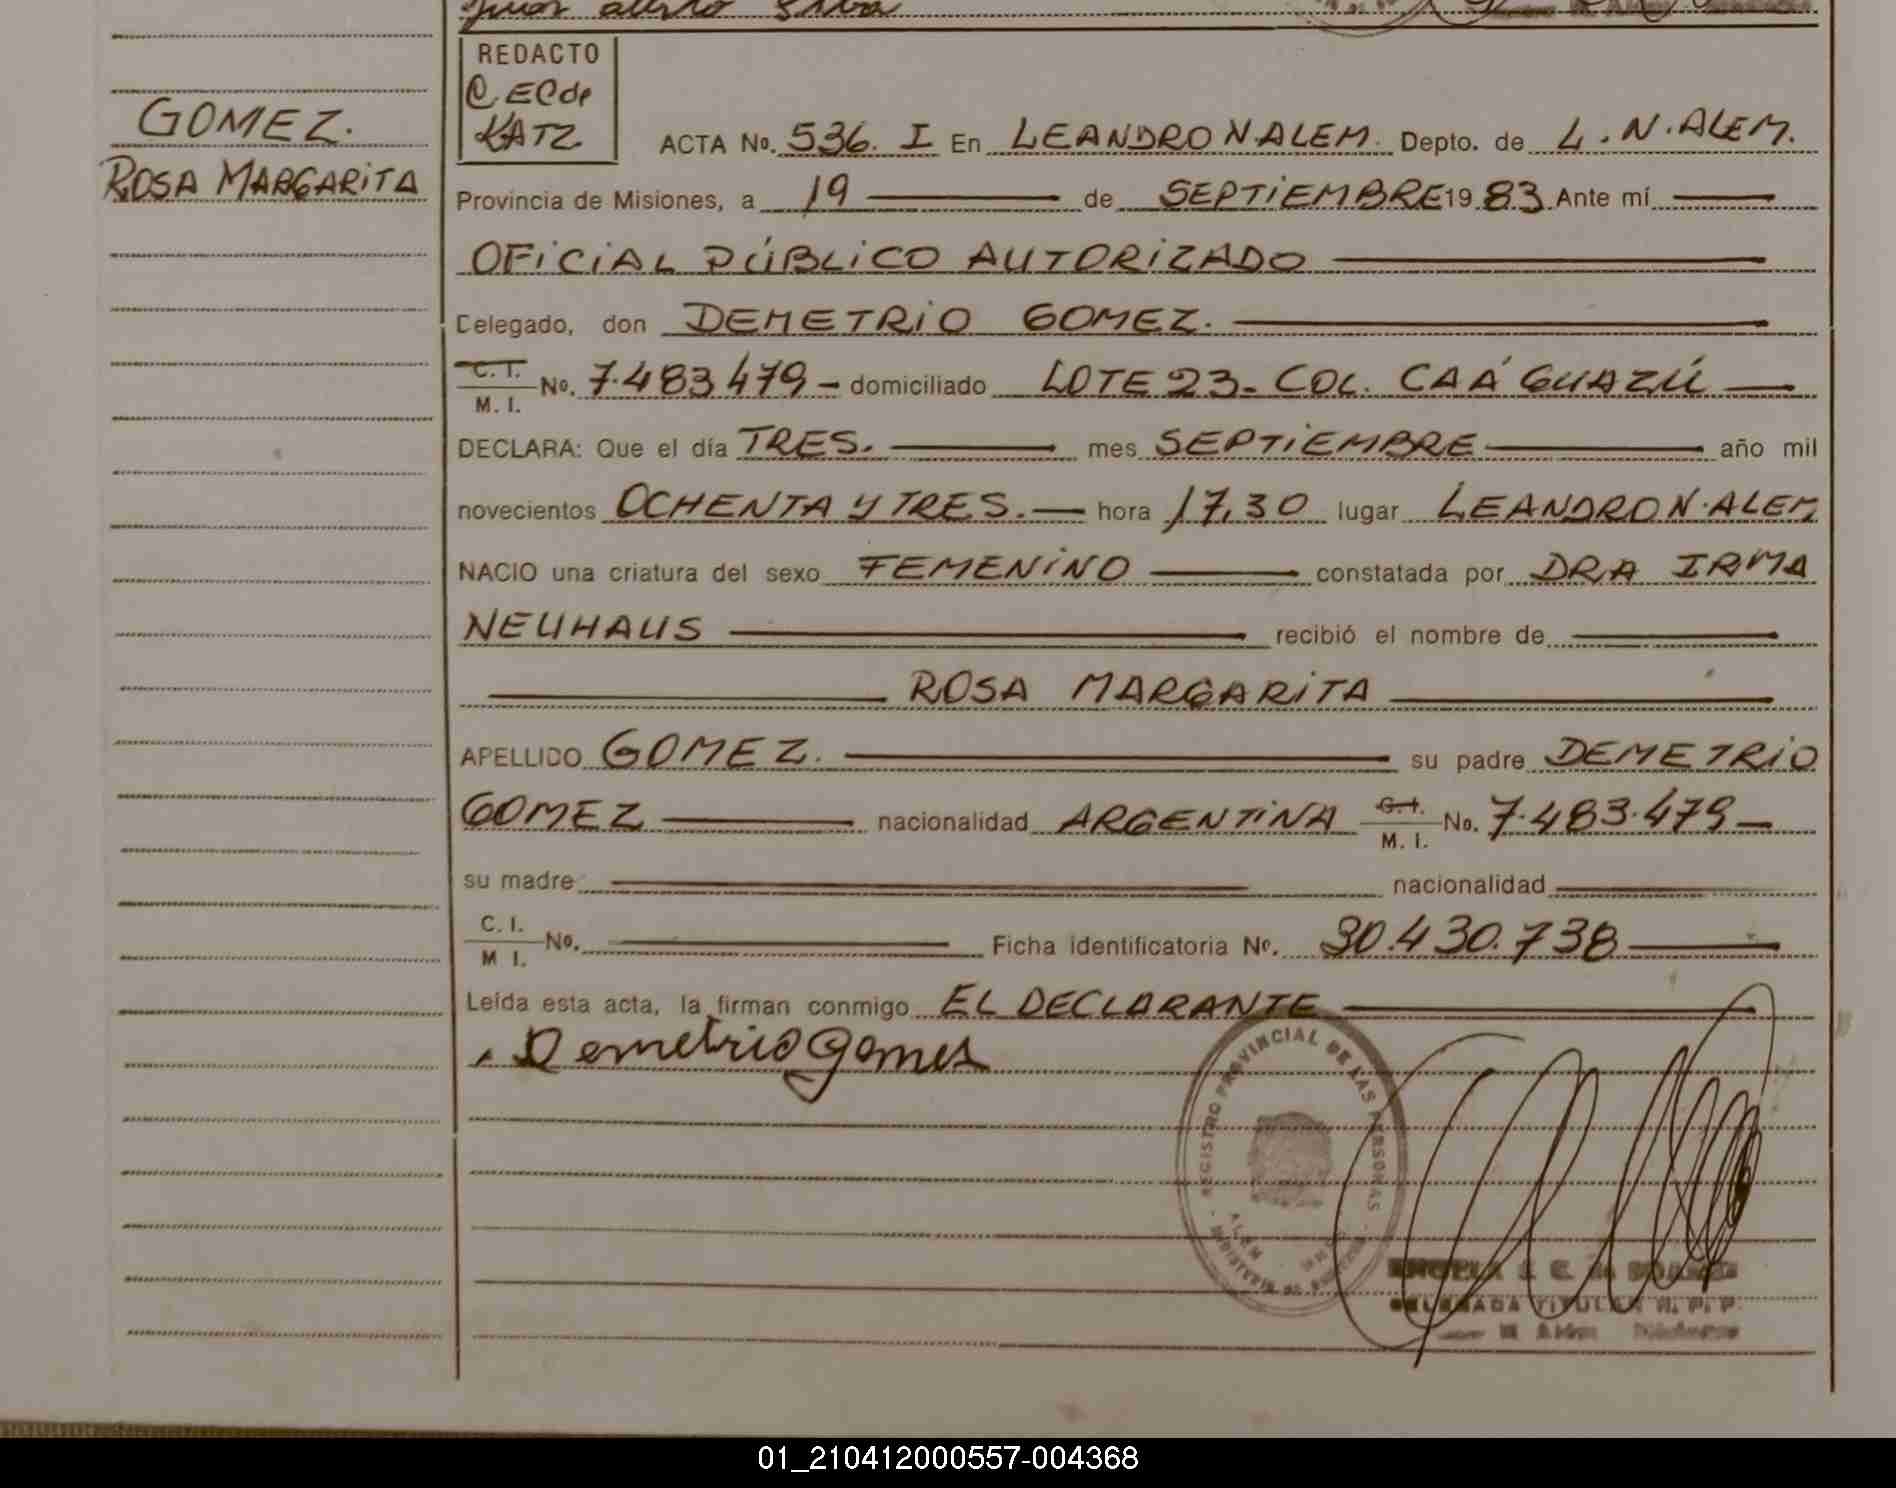 GOMEZ.
ROSA MARGARITA
REDACTO
C. EC de
KATZ
ACTA No. 536. I En LEANDRO N. ALEM. Depto. de L. N. ALEM.
Provincia de Misiones, a 19 de SEPTIEMBRE 1983 Ante mí
OFICIAL PÚBLICO AUTORIZADO
Delegado, don DEMETRIO GOMEZ.
C. I.
M. I. No. 7.483.479 - domiciliado LOTE 23 - COL. CAÁ GUAZÚ
DECLARA: Que el día TRES. mes SEPTIEMBRE año mil
novecientos OCHENTA Y TRES. hora 17,30 lugar LEANDRO N. ALEM
NACIO una criatura del sexo FEMENINO constatada por DRA IRMA
NEUHAUS recibió el nombre de
ROSA MARGARITA
APELLIDO GOMEZ. su padre DEMETRIO
GOMEZ nacionalidad ARGENTINA C. I.
M. I. No. 7.483.479 -
su madre nacionalidad
C. I.
M I. No. Ficha identificatoria No. 30.430.738
Leída esta acta, la firman conmigo EL DECLARANTE
Demetrio Gomes
REGISTRO PROVINCIAL DE LAS PERSONAS
ALEM
DELEGADA TITULAR R. P. P.
01_210412000557-004368